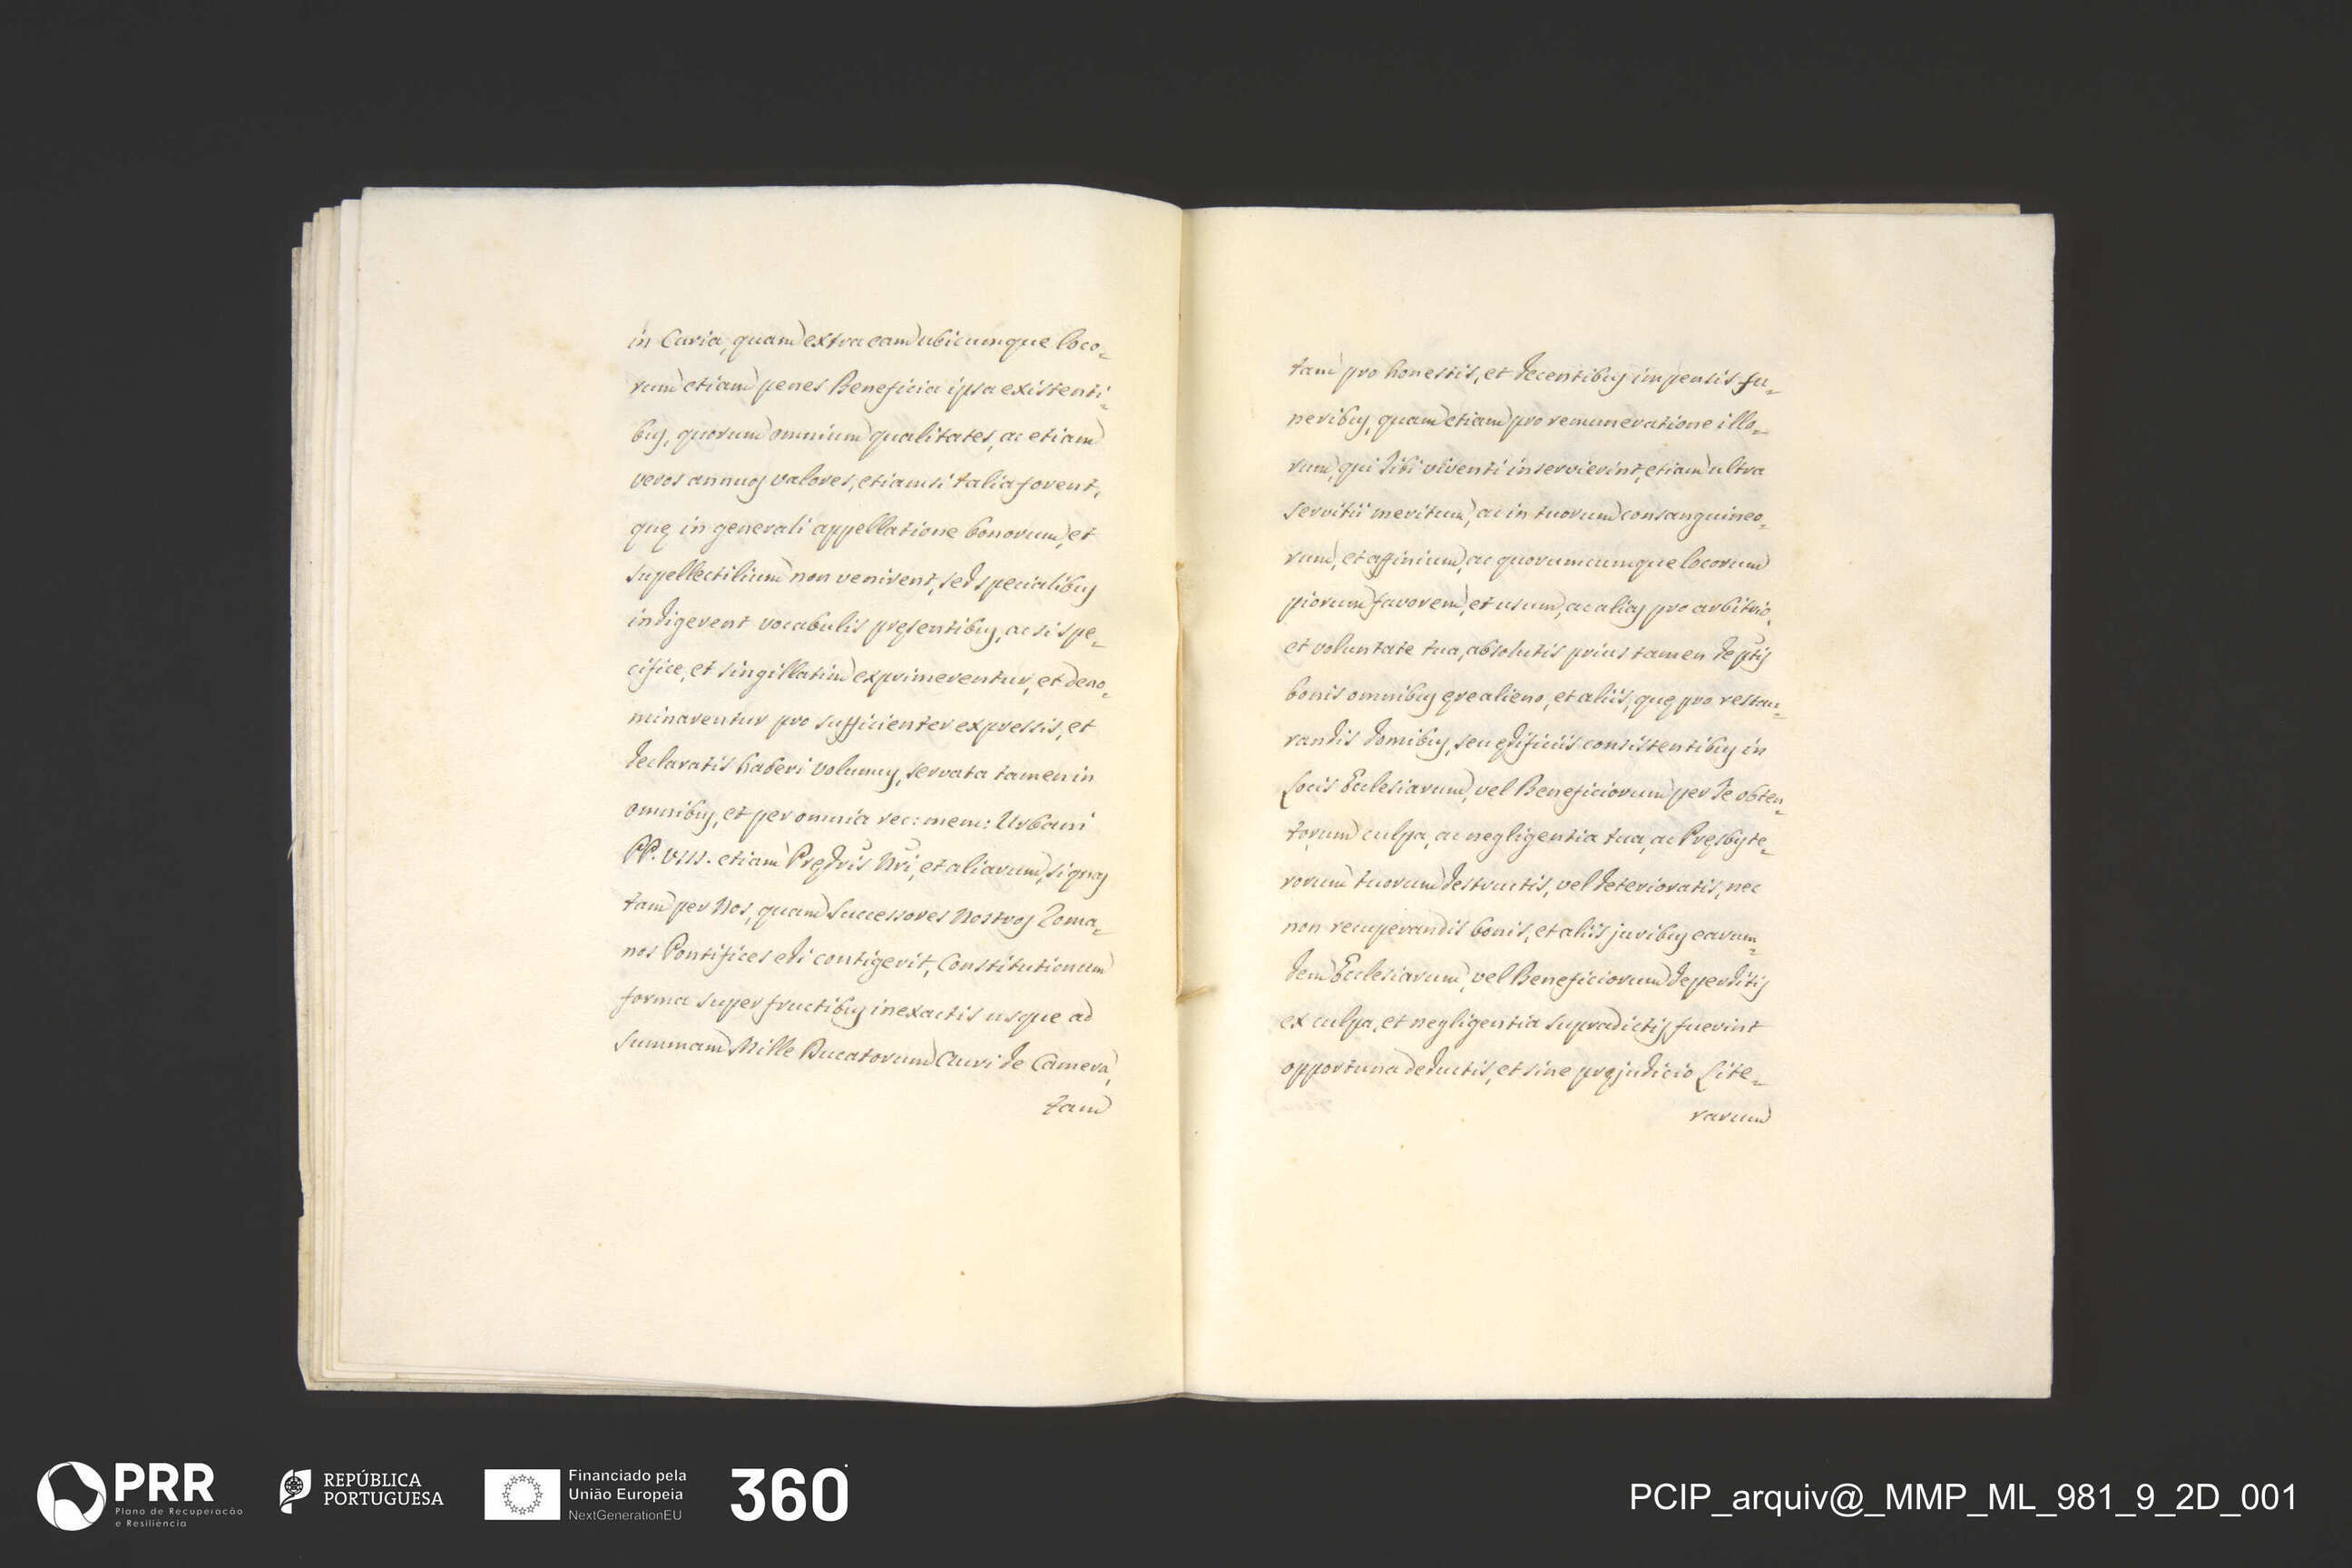 in Curia, quam extra eam ubicumque loco-
rum etiam penes Beneficia ipsa existenti-
bus, quorum omnium qualitates, ac etiam
veros annuos valores, etiamsi talia forent,
quę in generali appellatione bonorum, et
supellectilium non venirent, sed specialibus
indigerent vocabulis pręsentibus, ac si spe-
cifice, et singillatim exprimerentur, et deno-
minarentur pro sufficienter expressis, et
declaratis haberi volumus, servata tamen in
omnibus, et per omnia rec: mem: Urbani
PP. VIII. etiam Pręd̃ris Nr̃i, et aliarum, si quas
tam per Nos, quam Successores Nostros Roma-
nos Pontifices edi contigerit, Constitutionum
forma super fructibus inexactis usque ad
summam Mille Ducatorum Auri de Camera,
tam
tam pro honestis, et decentibus impensis fu-
neribus, quam etiam pro remuneratione illo-
rum, qui tibi viventi inservierint, etiam ultra
servitii meritum, ac in tuorum consanguineo-
rum, et affinium, ac quorumcumque locorum
piorum favorem, et usum, ac alias pro arbitrio,
et voluntate tua, absolutis prius tamen de p̃tis
bonis omnibus ęre alieno, et aliis, quę pro restau-
randis domibus, seu ędificiis consistentibus in
Locis Ecclesiarum, vel Beneficiorum per te obten-
torum culpa, ac negligentia tua, ac Pręsbyte-
rorum tuorum destructis, vel deterioratis, nec
non recuperandis bonis, et aliis juribus earum-
dem Ecclesiarum, vel Beneficiorum deperditis
ex culpa, et negligentia supradictis fuerint
opportuna deductis, et sine pręjudicio Lite-
rarum
PRR
Plano de Recuperação
e Resiliência
REPÚBLICA
PORTUGUESA
Financiado pela
União Europeia
NextGenerationEU
360°
PCIP_arquiv@_MMP_ML_981_9_2D_001